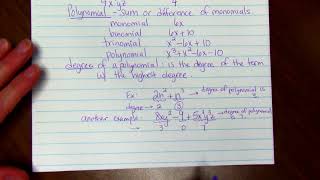 4x yz 4
Polynomial - Sum or difference of monomials
monomial 6x
binomial 6x+10
trinomial x²-6x+10
polynomial x³+x²-6x-10
degree of a polynomial: is the degree of the term
w/ the highest degree.
Ex: 2n²+n³ → degree of polynomial is
degree → 2 3
another example: 8xy²-9+5x
→ degree of polynomial
→ 3 0 7